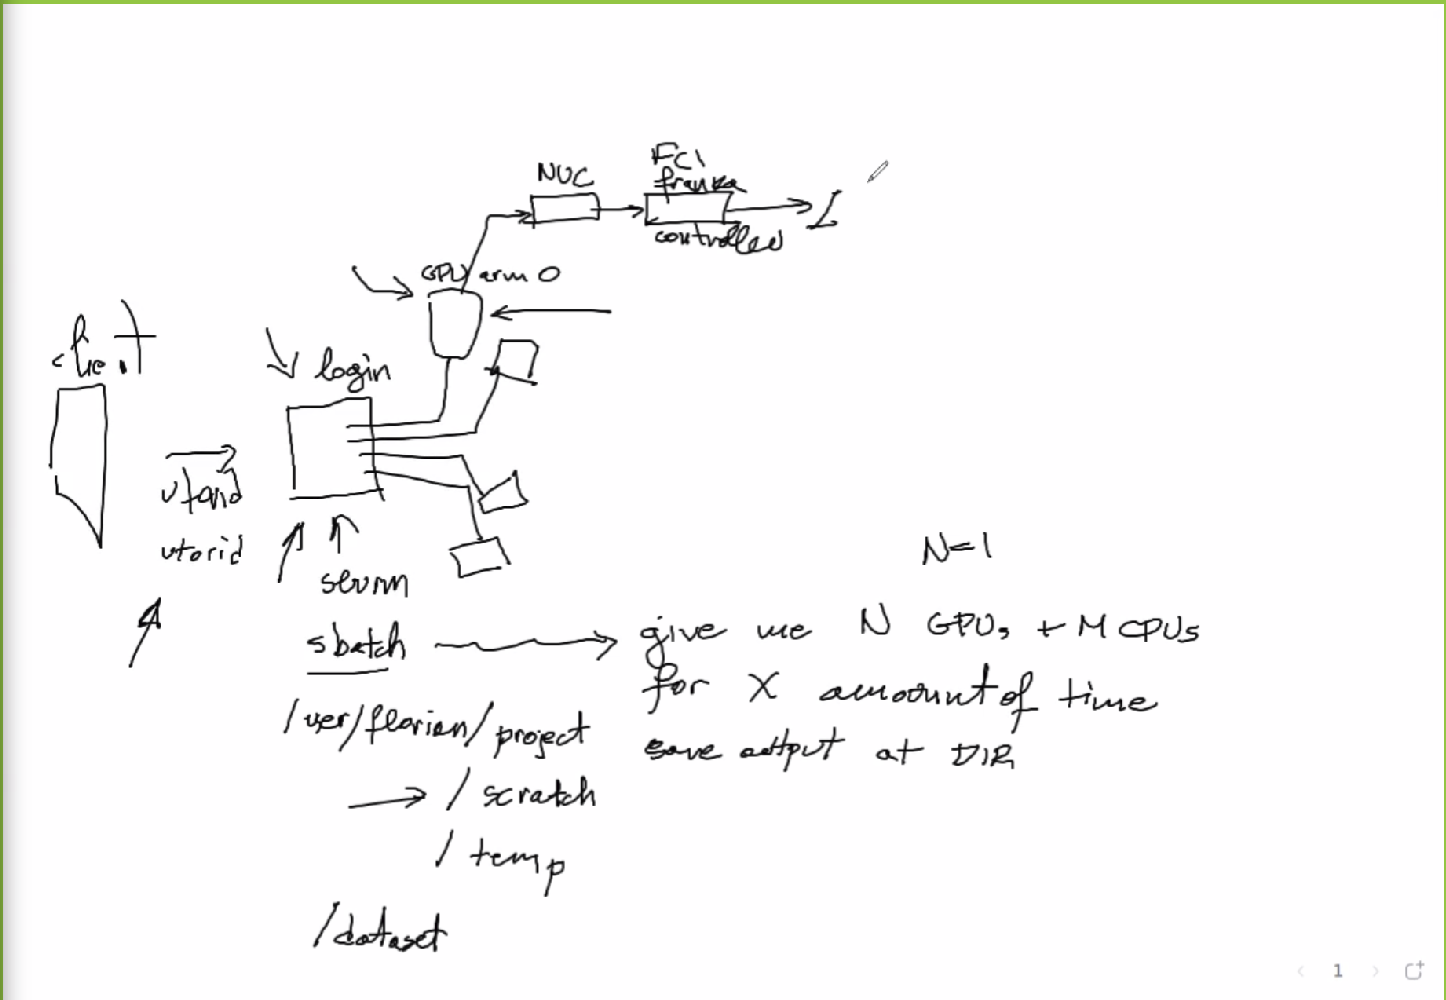 NUC
FCI
franka
controlled
GPU arm 0
client
login
utorid
slurm
N=1
sbatch
give me N GPUs + M CPUs
for X amount of time
save output at DIR
/user/florian/project
/scratch
/temp
/dataset
1